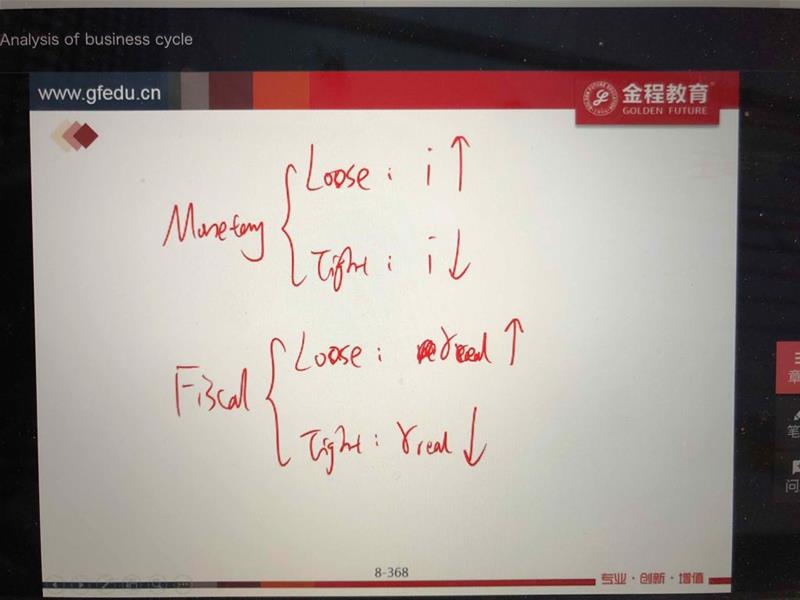 Analysis of business cycle
www.gfedu.cn
金程教育
GOLDEN FUTURE
Loose : i ↑
Monetary
Tight : i ↓
Loose : r real ↑
Fiscal
Tight : r real ↓
章
笔
问
8-368
专业·创新·增值